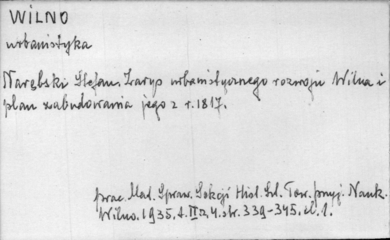 WILNO
urbanistyka
Narębski Stefan. Zarys urbanistycznego rozwoju Wilna i
plan zabudowania jego z r. 1817.
prac. Mat. Spraw. Sekcji Hist. Szt. Tow. przyj. Nauk.
Wilno. 1935. t. II z. 4. str. 339-345. il. 1.